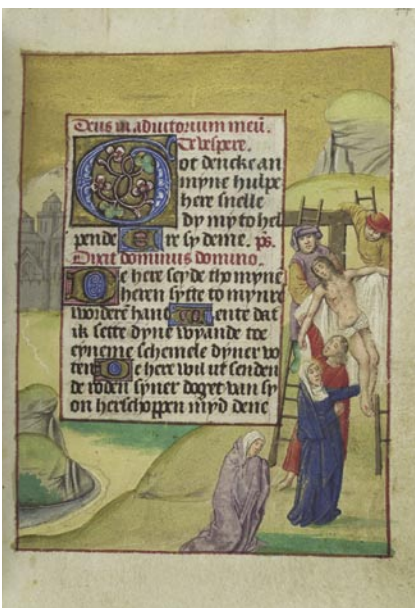 Deus in adiutorium meū.
Te vespere.
Got dencke an
myne hulpe
here snelle
dy my to hel
pende Ere sy deme. ps.
Dixit dominus domino.
De here seyde tho myne
heren sytte to mynre
vordere hant Wente dat
ik sette dyne vyande toe
eyneme schemele dyner vo
ten De here wil ut senden
de roden syner doget van sy
on herschoppen myd dene